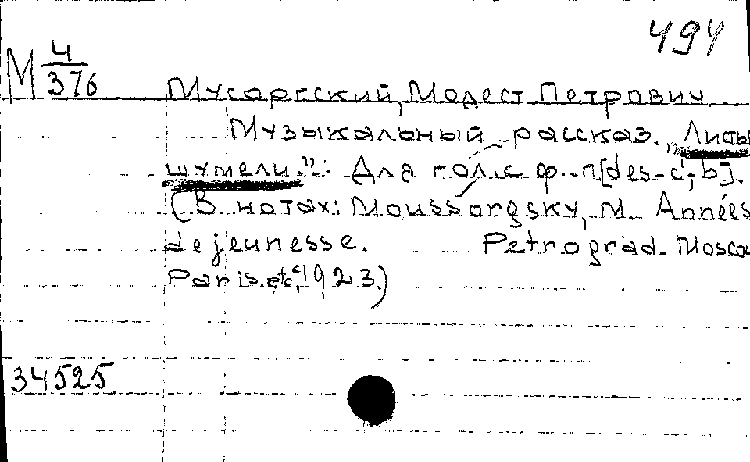 494
М 4/376
Мусоргский, Модест Петрович
Музыкальный рассказ. „Листья
шумели.": Для гол. с ф.-п [des-c', b].
(В нотах: Moussorgsky, M. Années
de jeunesse. Petrograd. Mosco
Paris. etc, 1923.)
34525